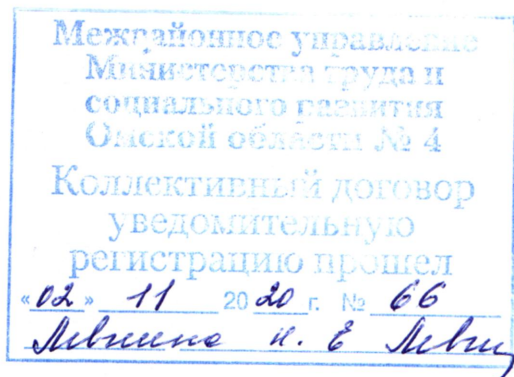 Межрайонное управление
Министерства труда и
социального развития
Омской области № 4
Коллективный договор
уведомительную
регистрацию прошел
«02» 11 2020 г. № 66
Левкина Н. Е